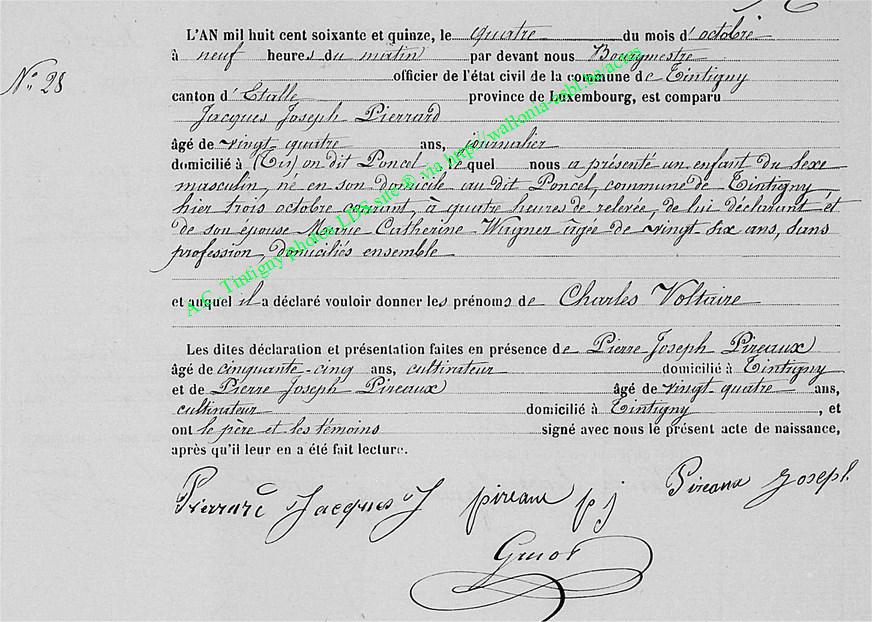 L'AN mil huit cent soixante et quinze, le quatre du mois d'octobre
à neuf heures du matin par devant nous Bourgmestre
N° 28
officier de l'état civil de la commune de Tintigny
canton d'Etalle province de Luxembourg, est comparu
Jacques Joseph Pierrard
âgé de vingt quatre ans, journalier
domicilié à dit Poncel, lequel nous a présenté un enfant du sexe
masculin, né en son domicile au dit Poncel, commune de Tintigny
hier trois octobre courant, à quatre heures de relevée, de lui déclarant et
de son épouse Marie Catherine Wagner âgée de vingt six ans, sans
profession, domiciliés ensemble
et auquel il a déclaré vouloir donner les prénoms de Charles Voltaire
Les dites déclaration et présentation faites en présence de Pierre Joseph Pireaux
âgé de cinquante-cinq ans, cultivateur domicilié à Tintigny
et de Pierre Joseph Pireaux âgé de vingt-quatre ans,
cultivateur domicilié à Tintigny, et
ont le père et les témoins signé avec nous le présent acte de naissance,
après qu'il leur en a été fait lecture.
Pierrard Jacques J pireaux p j Pireaux Joseph
A.C. Tintigny photos LDS site © via http://wallonia-asbl.be/actes